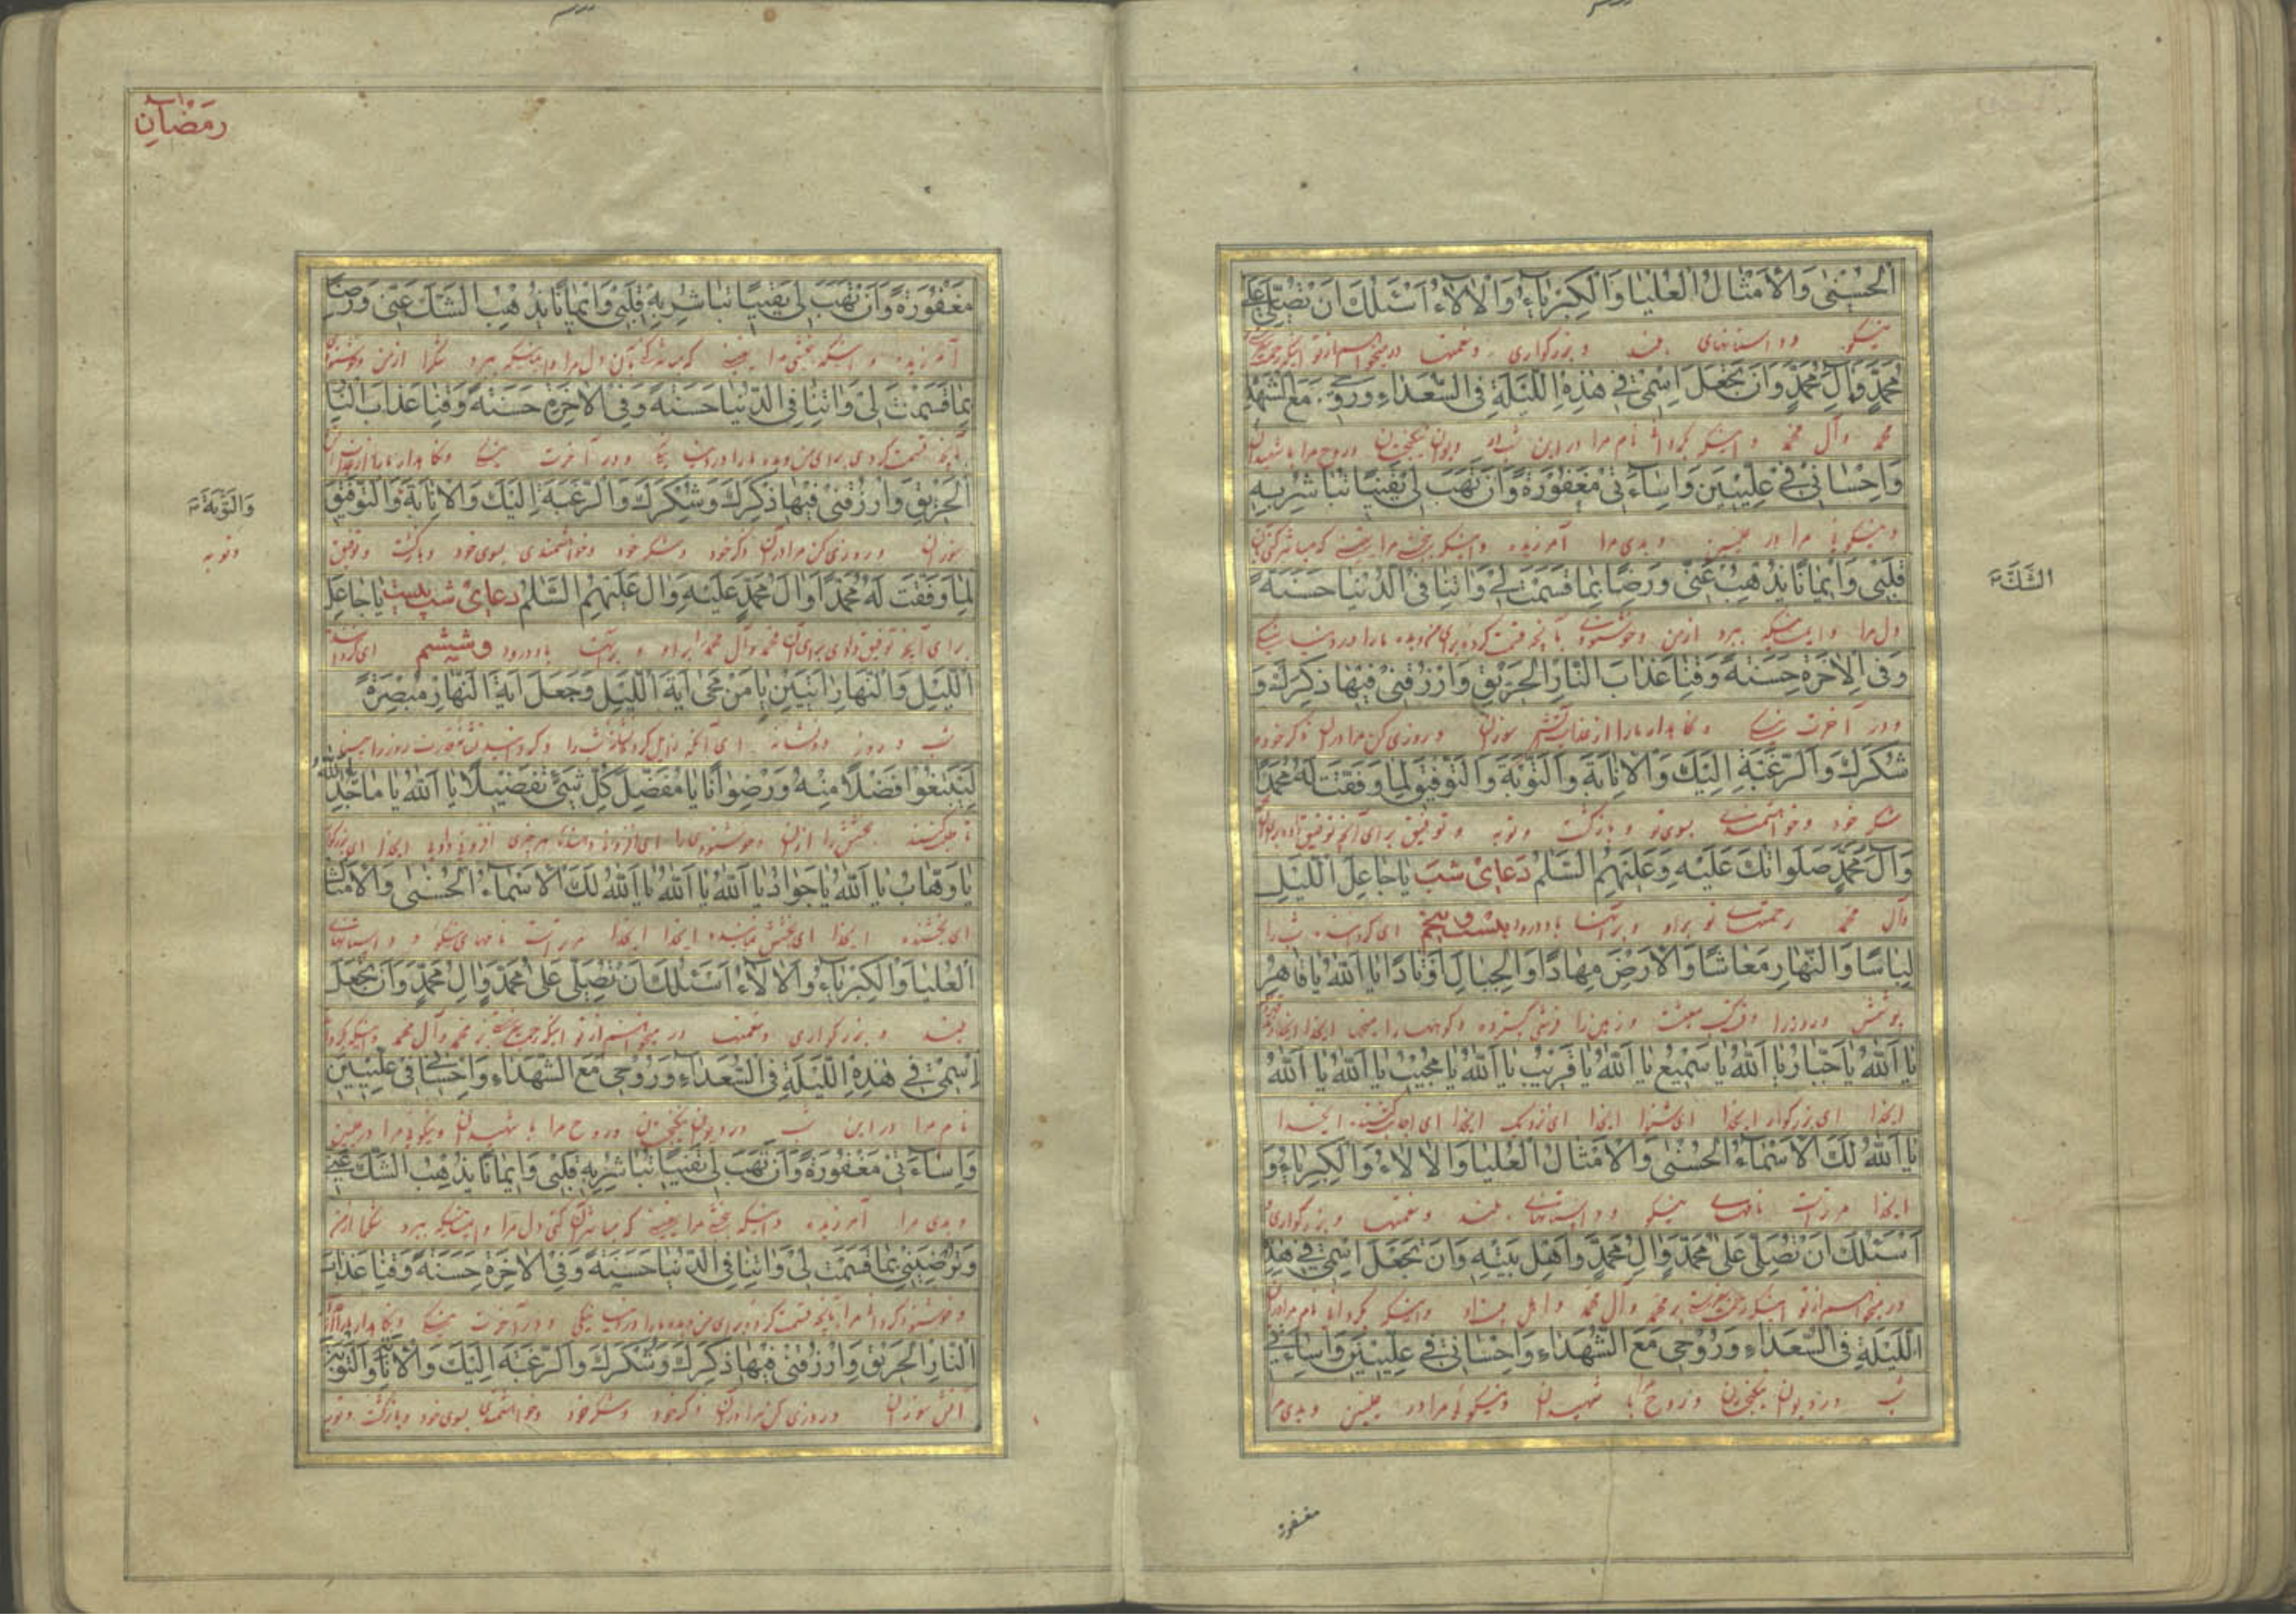 الْحُسْنٰى وَالْأَمْثَالُ الْعُلْيَا وَالْكِبْرِيَاءُ وَالْآلَاءُ اَسْئَلُكَ اَنْ تُصَلِّيَ عَلٰى
نیکو و داستانهای بلند و بزرگواری و نعمتها
مُحَمَّدٍ وَآلِ مُحَمَّدٍ وَاَنْ تَجْعَلَ اِسْمِى فِى هٰذِهِ اللَّيْلَةِ فِى السُّعَدَاءِ وَرُوحِى مَعَ الشُّهَدَاءِ
محمد و آل محمد و اینکه نام مرا در این شب در دیوان نیکبختان و روح مرا با شهیدان
وَاِحْسَانِى فِى عِلِّيِّينَ وَاِسَاءَتِى مَغْفُورَةً وَاَنْ تَهَبَ لِى يَقِينًا تُبَاشِرُ بِهِ
و نیکوئی مرا در علیین و بدی مرا آمرزیده و اینکه بخشی مرا یقینی که مباشر کنی بآن
قَلْبِى وَاِيمَانًا يُذْهِبُ عَنِّى وَرِضًا بِمَا قَسَمْتَ لِى وَاٰتِنَا فِى الدُّنْيَا حَسَنَةً
الشَّكَّ
دل مرا و ایمانیکه ببرد از من و خوشنودی بآنچه قسمت کرده برای من و بده ما را در دنیا نیکی
وَفِى الْاٰخِرَةِ حَسَنَةً وَقِنَا عَذَابَ النَّارِ الْحَرِيقِ وَارْزُقْنِى فِيهَا ذِكْرَكَ وَ
و در آخرت نیکی و نگاهدار ما را از عذاب آتش سوزان و روزی کن مرا در آن ذکر خود و
شُكْرَكَ وَالرَّغْبَةَ اِلَيْكَ وَالْاِنَابَةَ وَالتَّوْبَةَ وَالتَّوْفِيقَ لِمَا وَفَّقْتَ لَهُ مُحَمَّدًا
شکر خود و خواهشمندی بسوی تو و بازگشت و توبه و توفیق برای آنچه توفیق
وَآلَ مُحَمَّدٍ صَلَوَاتُكَ عَلَيْهِ وَعَلَيْهِمُ السَّلَامُ دعای شب يَا جَاعِلَ اللَّيْلِ
و آل محمد رحمتهای تو بر او و بر آنها باد درود بیست و پنجم ای گرداننده شب را
لِبَاسًا وَالنَّهَارِ مَعَاشًا وَالْاَرْضِ مِهَادًا وَالْجِبَالِ اَوْتَادًا يَا اَللهُ يَا قَاهِرُ
پوشش و روز را وقت معیشت و زمین را فرش گسترده و کوهها را میخها ایخدا
يَا اَللهُ يَا جَبَّارُ يَا اَللهُ يَا سَمِيعُ يَا اَللهُ يَا قَرِيبُ يَا اَللهُ يَا مُجِيبُ يَا اَللهُ يَا اَللهُ
ایخدا ای بزرگوار ایخدا ای شنوا ایخدا ای نزدیک ایخدا ای اجابت کننده ایخدا
يَا اَللهُ لَكَ الْاَسْمَاءُ الْحُسْنٰى وَالْاَمْثَالُ الْعُلْيَا وَالْاٰلَاءُ وَالْكِبْرِيَاءُ وَ
ایخدا مر تراست نامهای نیکو و داستانهای بلند و نعمتها و بزرگواری و
اَسْئَلُكَ اَنْ تُصَلِّيَ عَلٰى مُحَمَّدٍ وَاٰلِ مُحَمَّدٍ وَاَهْلِ بَيْتِهِ وَاَنْ تَجْعَلَ اسْمِى فِى هٰذِهِ
میخواهم از تو اینکه رحمت فرستی بر محمد و آل محمد و اهل بیت او و اینکه بگردانی نام مرا
اللَّيْلَةِ فِى السُّعَدَاءِ وَرُوحِى مَعَ الشُّهَدَاءِ وَاِحْسَانِى فِى عِلِّيِّينَ وَاِسَاءَتِى
شب در دیوان نیکبختان و روح مرا با شهیدان و نیکوئی مرا در علیین و بدی مرا
مغفورة
رمضان
مَغْفُورَةً وَاَنْ تَهَبَ لِى يَقِينًا تُبَاشِرُ بِهِ قَلْبِى وَاِيمَانًا يُذْهِبُ الشَّكَّ عَنِّى وَرِضًا
آمرزیده و اینکه بخشی مرا یقینی که مباشر کنی بآن دل مرا و ایمانیکه ببرد شک را از من و خوشنودی
بِمَا قَسَمْتَ لِى وَاٰتِنَا فِى الدُّنْيَا حَسَنَةً وَفِى الْاٰخِرَةِ حَسَنَةً وَقِنَا عَذَابَ النَّارِ
بآنچه قسمت کردی برای من و بده ما را در دنیا نیکی و در آخرت نیکی و نگاهدار ما را از عذاب
الْحَرِيقِ وَارْزُقْنِى فِيهَا ذِكْرَكَ وَشُكْرَكَ وَالرَّغْبَةَ اِلَيْكَ وَالْاِنَابَةَ وَالتَّوْفِيقَ
وَالتَّوْبَةَ
سوزان و روزی کن مرا در آن ذکر خود و شکر خود و خواهشمندی بسوی خود و بازگشت و توفیق
و توبه
لِمَا وَفَّقْتَ لَهُ مُحَمَّدًا وَاٰلَ مُحَمَّدٍ عَلَيْهِ وَاٰلِ عَلَيْهِمُ السَّلَامُ دعای شب بیست يَا جَاعِلَ
برای آنچه توفیق دادی برای آن محمد و آل محمد بر او و بر آنها باد درود و ششم ای گرداننده
اللَّيْلِ وَالنَّهَارِ اٰيَتَيْنِ يَا مَنْ مَحٰى اٰيَةَ اللَّيْلِ وَجَعَلَ اٰيَةَ النَّهَارِ مُبْصِرَةً
شب و روز دو نشانه ای آنکه
لِتَبْتَغُوا فَضْلًا مِنْهُ وَرِضْوَانًا يَا مُفَصِّلَ كُلِّ شَىْءٍ تَفْصِيلًا يَا اَللهُ يَا مَاجِدُ يَا اَللهُ
يَا وَهَّابُ يَا اَللهُ يَا جَوَادُ يَا اَللهُ يَا اَللهُ يَا اَللهُ لَكَ الْاَسْمَاءُ الْحُسْنٰى وَالْاَمْثَالُ
ای بخشنده ایخدا ای بخشش نماینده ایخدا ایخدا ایخدا مر تراست نامهای نیکو و داستانهای
الْعُلْيَا وَالْكِبْرِيَاءُ وَالْاٰلَاءُ اَسْئَلُكَ اَنْ تُصَلِّيَ عَلٰى مُحَمَّدٍ وَاٰلِ مُحَمَّدٍ وَاَنْ تَجْعَلَ
بلند و بزرگواری و نعمتها میخواهم از تو اینکه رحمت فرستی بر محمد و آل محمد و اینکه بگردانی
اِسْمِى فِى هٰذِهِ اللَّيْلَةِ فِى السُّعَدَاءِ وَرُوحِى مَعَ الشُّهَدَاءِ وَاِحْسَانِى فِى عِلِّيِّينَ
نام مرا در این شب در دیوان نیکبختان و روح مرا با شهیدان و نیکوئی مرا در علیین
وَاِسَاءَتِى مَغْفُورَةً وَاَنْ تَهَبَ لِى يَقِينًا تُبَاشِرُ بِهِ قَلْبِى وَاِيمَانًا يُذْهِبُ الشَّكَّ عَنِّى
و بدی مرا آمرزیده و اینکه بخشی مرا یقینی که مباشر آن کنی دل مرا و ایمانیکه ببرد شک را از من
وَتُرْضِيَنِى بِمَا قَسَمْتَ لِى وَاٰتِنَا فِى الدُّنْيَا حَسَنَةً وَفِى الْاٰخِرَةِ حَسَنَةً وَقِنَا عَذَابَ
و خوشنود گردانی مرا بآنچه قسمت کرده برای من و بده ما را در دنیا نیکی و در آخرت نیکی و نگاهدار ما را از
النَّارِ الْحَرِيقِ وَارْزُقْنِى فِيهَا ذِكْرَكَ وَشُكْرَكَ وَالرَّغْبَةَ اِلَيْكَ وَالْاِنَابَةَ وَالتَّوْبَةَ
آتش سوزان و روزی کن مرا در آن ذکر خود و شکر خود و خواهشمندی بسوی خود و بازگشت و توبه